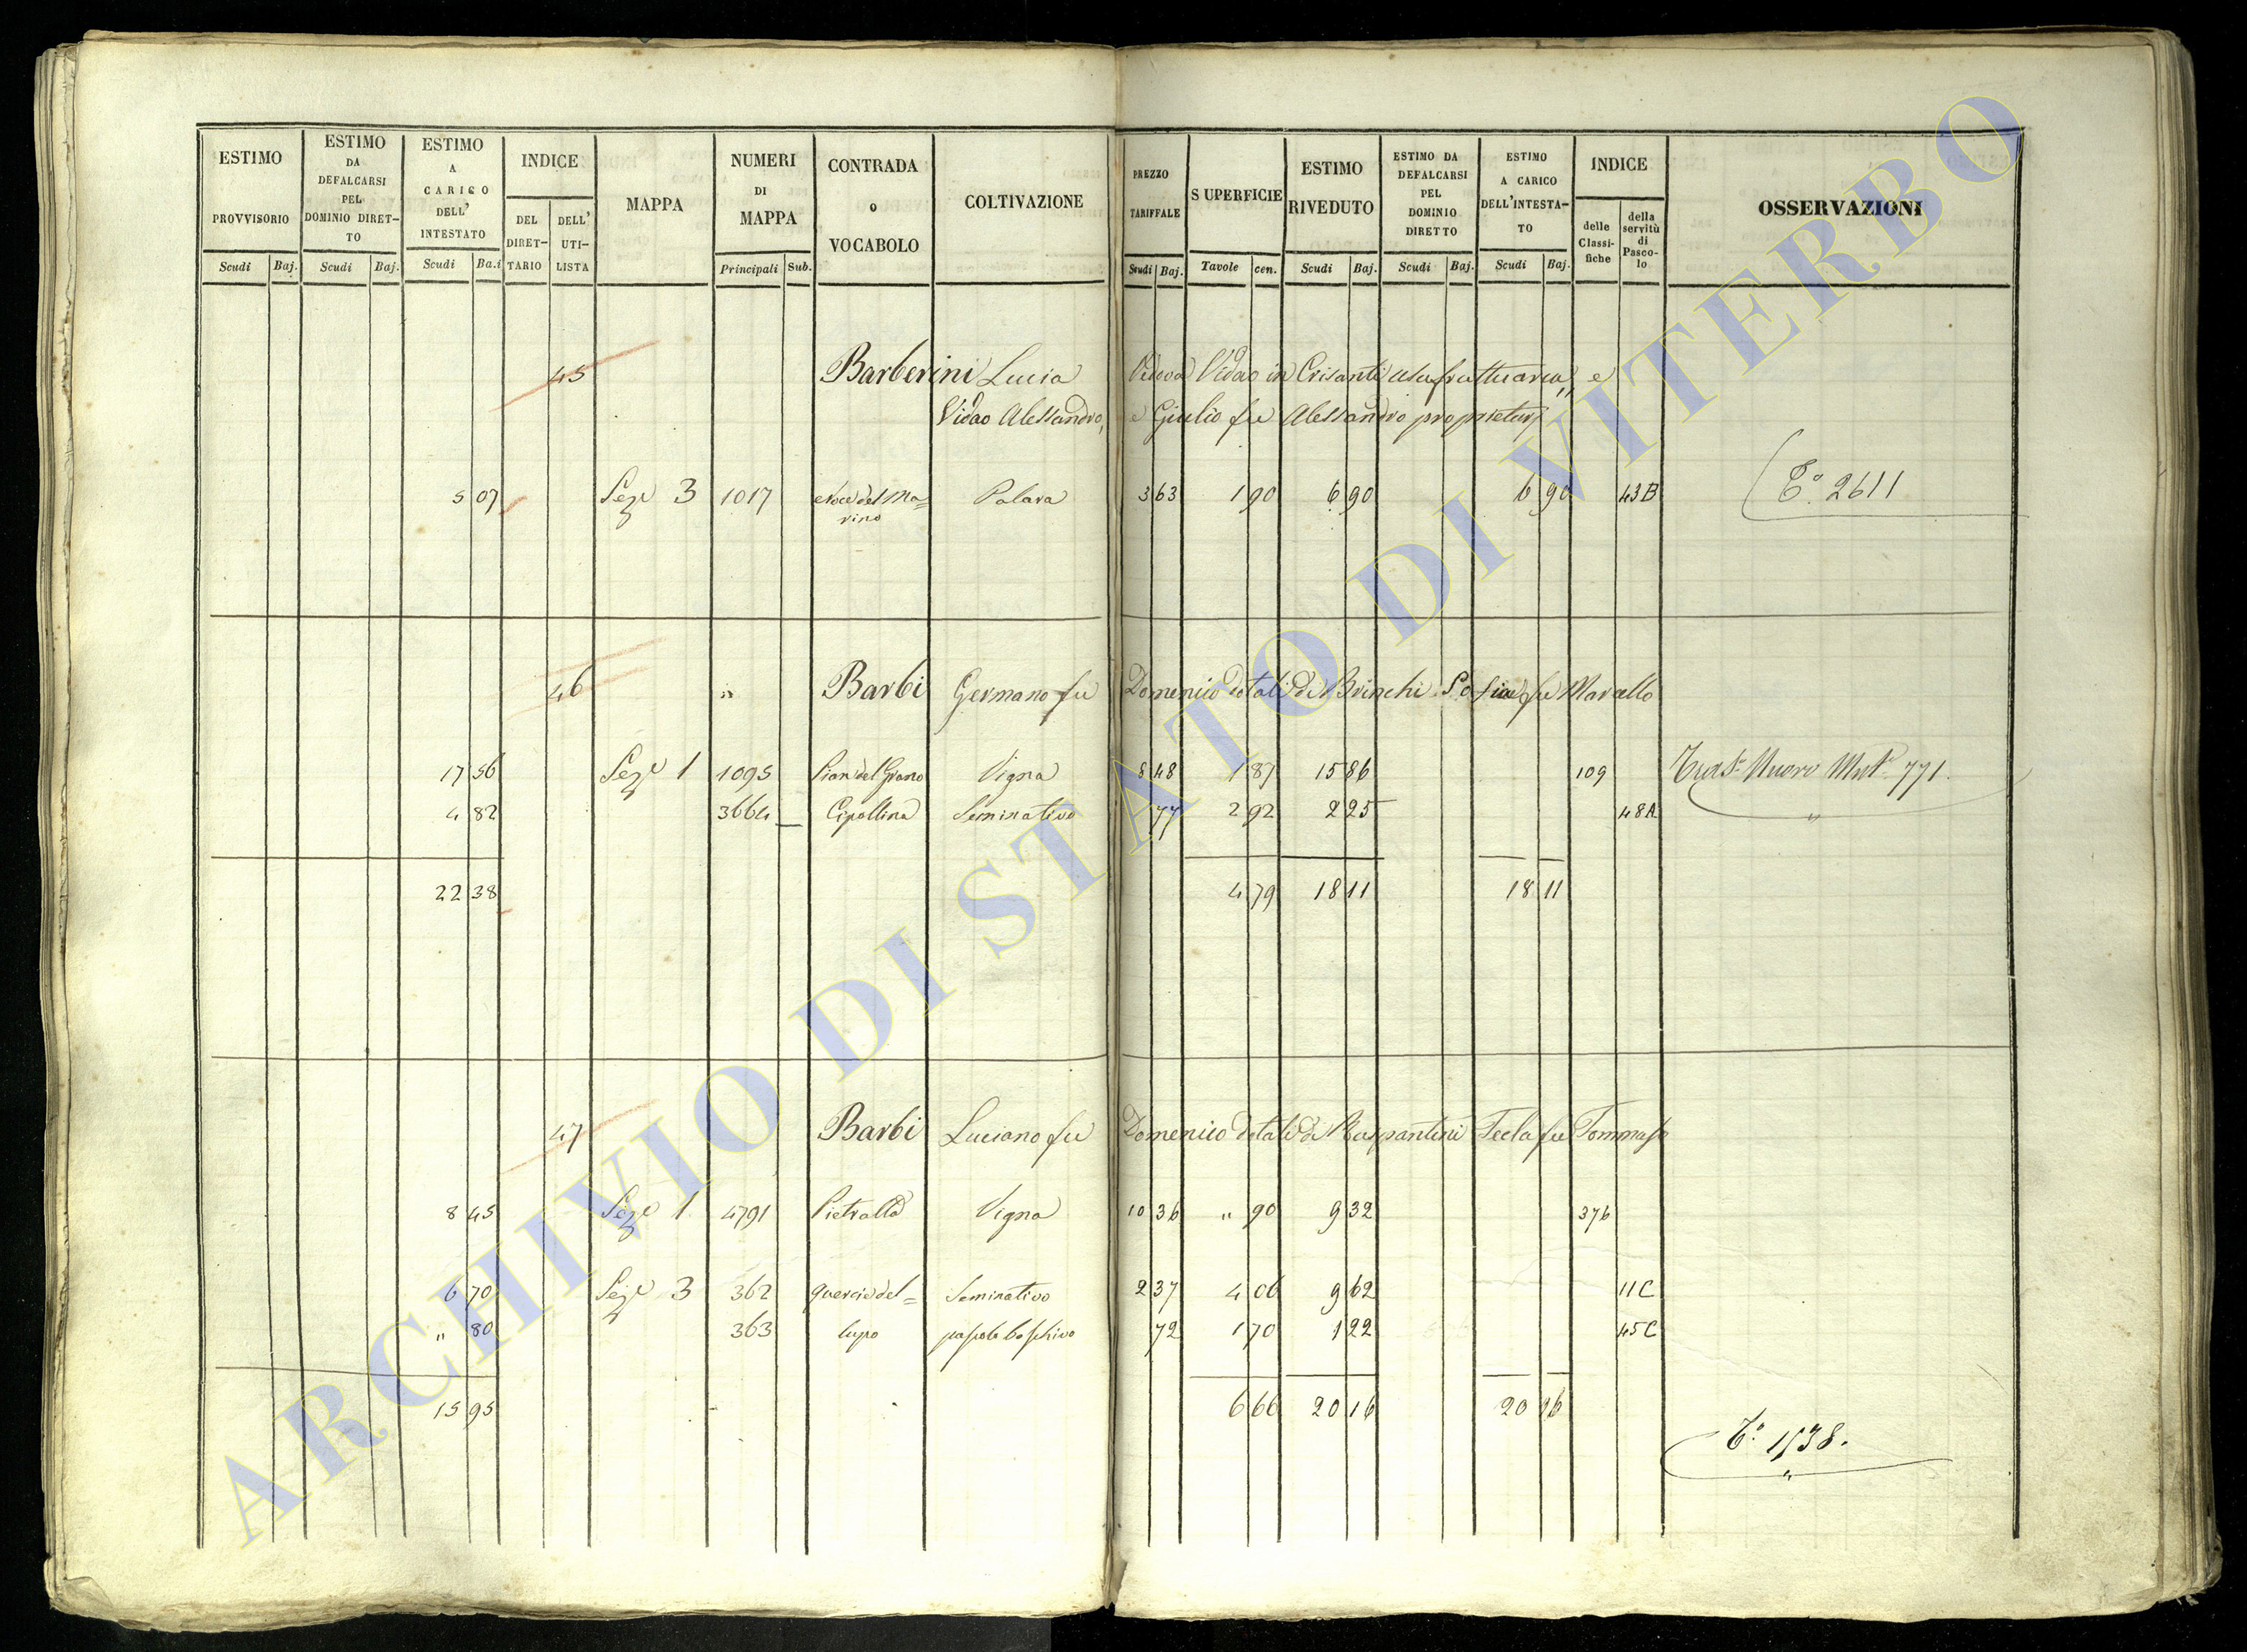 ESTIMO PROVVISORIO
Scudi Baj.
ESTIMO DA DEFALCARSI PEL DOMINIO DIRET-TO
Scudi Baj.
ESTIMO A CARICO DELL' INTESTATO
Scudi Ba.i
INDICE
DEL DIRET-TARIO
DELL' UTI-LISTA
MAPPA
NUMERI DI MAPPA
Principali Sub.
CONTRADA o VOCABOLO
COLTIVAZIONE
PREZZO TARIFFALE
Scudi Baj.
SUPERFICIE
Tavole cen.
ESTIMO RIVEDUTO
Scudi Baj.
ESTIMO DA DEFALCARSI PEL DOMINIO DIRETTO
Scudi Baj.
ESTIMO A CARICO DELL'INTESTA-TO
Scudi Baj.
INDICE
delle Classi-fiche
della servitù di Pasco-lo
OSSERVAZIONI
45 Barberini Lucia Vedova Vidao in Crisanti usufruttuaria, e
Vidao Alessandro, e Giulio fu Alessandro proprietarj
5 07 Seze 3 1017 Noce del Ma= Palara 3 63 1 90 6 90 6 90 43B Tº 2611
rino
46 " Barbi Germano fu Domenico dotali di Brinchi Sofia fu Marcello
17 56 Seze 1 1095 Pian del Grano Vigna 8 48 1 87 15 86 109 Trast. Nuovo Mut. 771.
4 82 3664 Cipollina Seminativo 77 2 92 2 25 48A
22 38 4 79 18 11 18 11
47 Barbi Luciano fu Domenico dotali di Raspantini Tecla fu Tommaso
8 45 Seze 1 4791 Pietralta Vigna 10 36 " 90 9 32 376
6 70 Seze 3 362 quercia del= Seminativo 2 37 4 06 9 62 11C
" 80 363 lupo pascolo boschivo 72 1 70 1 22 45C
15 95 6 66 20 16 20 16
Tº 1538.
ARCHIVIO DI STATO DI VITERBO